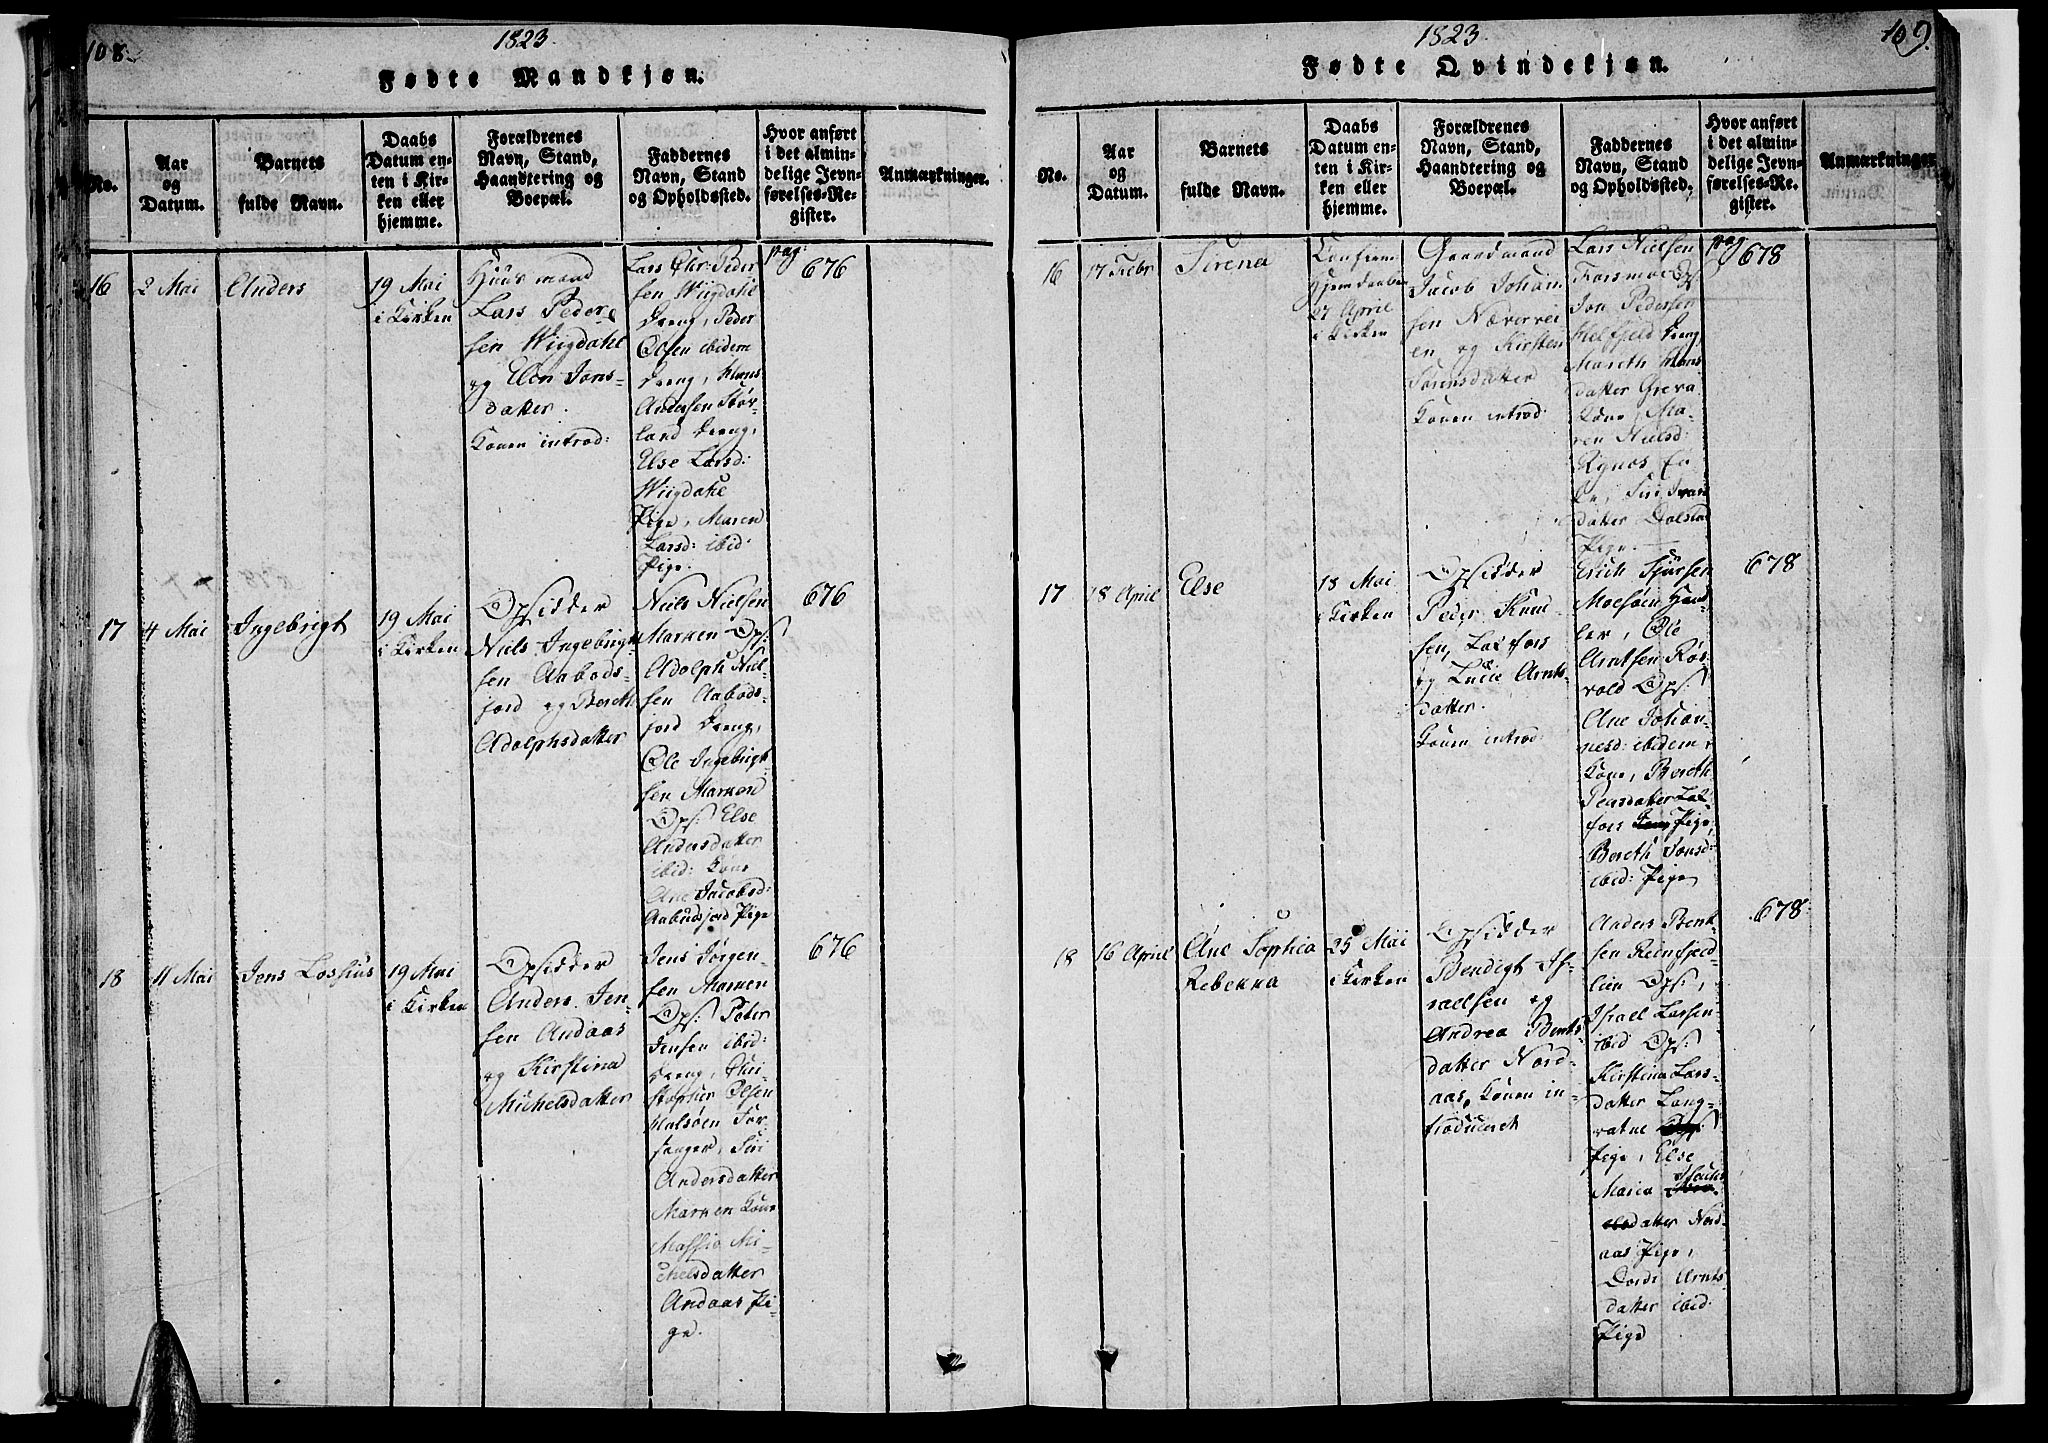 108.
1823.
Fødte Mandkjøn.
No.
Aar
og
Datum.
Barnets
fulde Navn.
Daabs
Datum en-
ten i Kir-
ken eller
hjemme.
Forældrenes
Navn, Stand,
Haandtering og
Boepæl.
Faddernes
Navn, Stand
og Opholdssted.
Hvor anført
i det almin-
delige Jevn-
førelses-Re-
gister.
Anmærkninger.
16
2 Mai
Anders
19 Mai
i Kirken
Huusmand
Lars Peder-
sen Wiigdahl
og Elen Jons-
datter.
Konen introd:
Lars Chr: Peder
sen Wiigdahl
Dreng, Peder
Olsen ibidem
Dreng, Hans
Andersen Stor-
land Dreng,
Else Larsd:
Wiigdahl
Pige, Maren
Larsd: ibid:
Pige.
pag:
676
17
4 Mai
Ingebrigt
19 Mai
i Kirken
Opsidder
Niels Ingebrigt
sen Aabods-
fjord og Bereth
Adolphsdatter
Niels Nielsen
Marken Ops:
Adolph Niel-
sen Aabods-
fjord Dreng,
Ole Ingebrigt-
sen Marken
Ops: Else
Andersdatter
ibid: Kone
Ane Jacobsd:
Aabodsfjord Pige
676
18
11 Mai
Jens Lossius
19 Mai
i Kirken
Opsidder
Anders Jen-
sen Andaas
og Kirstina
Michelsdatter
Jens Jørgen-
sen Marken
Ops: Peter
Jensen ibid:
Dreng, Chri-
stopher Olsen
Halsøen For-
sanger, Siri
Andersdatter
Marken Kone
Massia Mi-
chelsdatter
Andaas Pi-
ge.
676
109.
1823.
Fødte Qvindekjøn.
No.
Aar
og
Datum.
Barnets
fulde Navn.
Daabs
Datum en-
ten i Kir-
ken eller
hjemme.
Forældrenes
Navn, Stand,
Haandtering og
Boepæl.
Faddernes
Navn, Stand
og Opholdssted.
Hvor anført
i det almin-
delige Jevn-
førelses-Re-
gister.
Anmærkninger
16
17 Febr
Sirena
Confirm:
Hjemdaaben
27 April
i Kirken
Gaardmand
Jacob Johan
sen Næverei
en og Kirsten
Sørensdatter
Konen introd:
Lars Nielsen
Forsmoe Ops:
Jon Pedersen
Helfjeld Dreng,
Mareth Hans
datter
Kone, Ma-
ren Nielsd:
datter Dolstad
Pige.
pag
678
17
18 April
Else
18 Mai
i Kirken
Opsidder
Peder Knud
sen, Laxfors
og Lucie Arnts-
datter.
Konen introd:
Erich Sjursen
Moesøen Hand-
ler, Ole
Arntsen Røs-
vold Ops:
Ane Johan-
nesd: ibidem
Kone, Bereth
Pedersdatter Lax-
fors Pige,
Bereth Jonsd:
ibid: Pige
678
18
16 April
Ane Sophia
Rebekka
25 Mai
i Kirken
Opsidder
Bendigt Is-
raelsen og
Andrea Bents
datter Nord-
aas, Konen in-
troduceret
Anders Bent-
sen Reinfjeld-
lien Ops:,
Israel Larsen
ibid Ops:
Kirstina Lars-
datter Lang-
vatne
Pige, Else
Maria
datter Nord-
aas Pige,
Dordi Arnts
datter ibid:
Pige
678